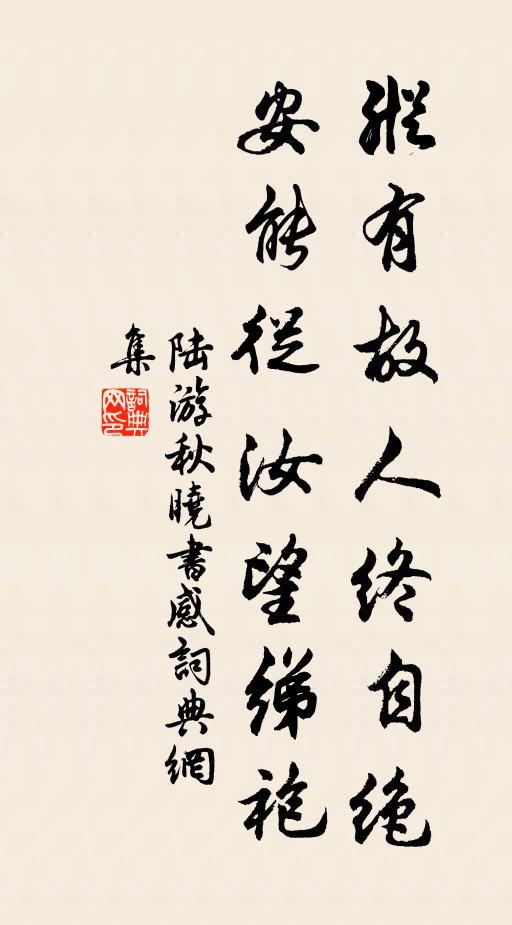 縱有故人終自絕
安能從汝望綈袍
陆游秋曉書感詞典網
集
詞典网印